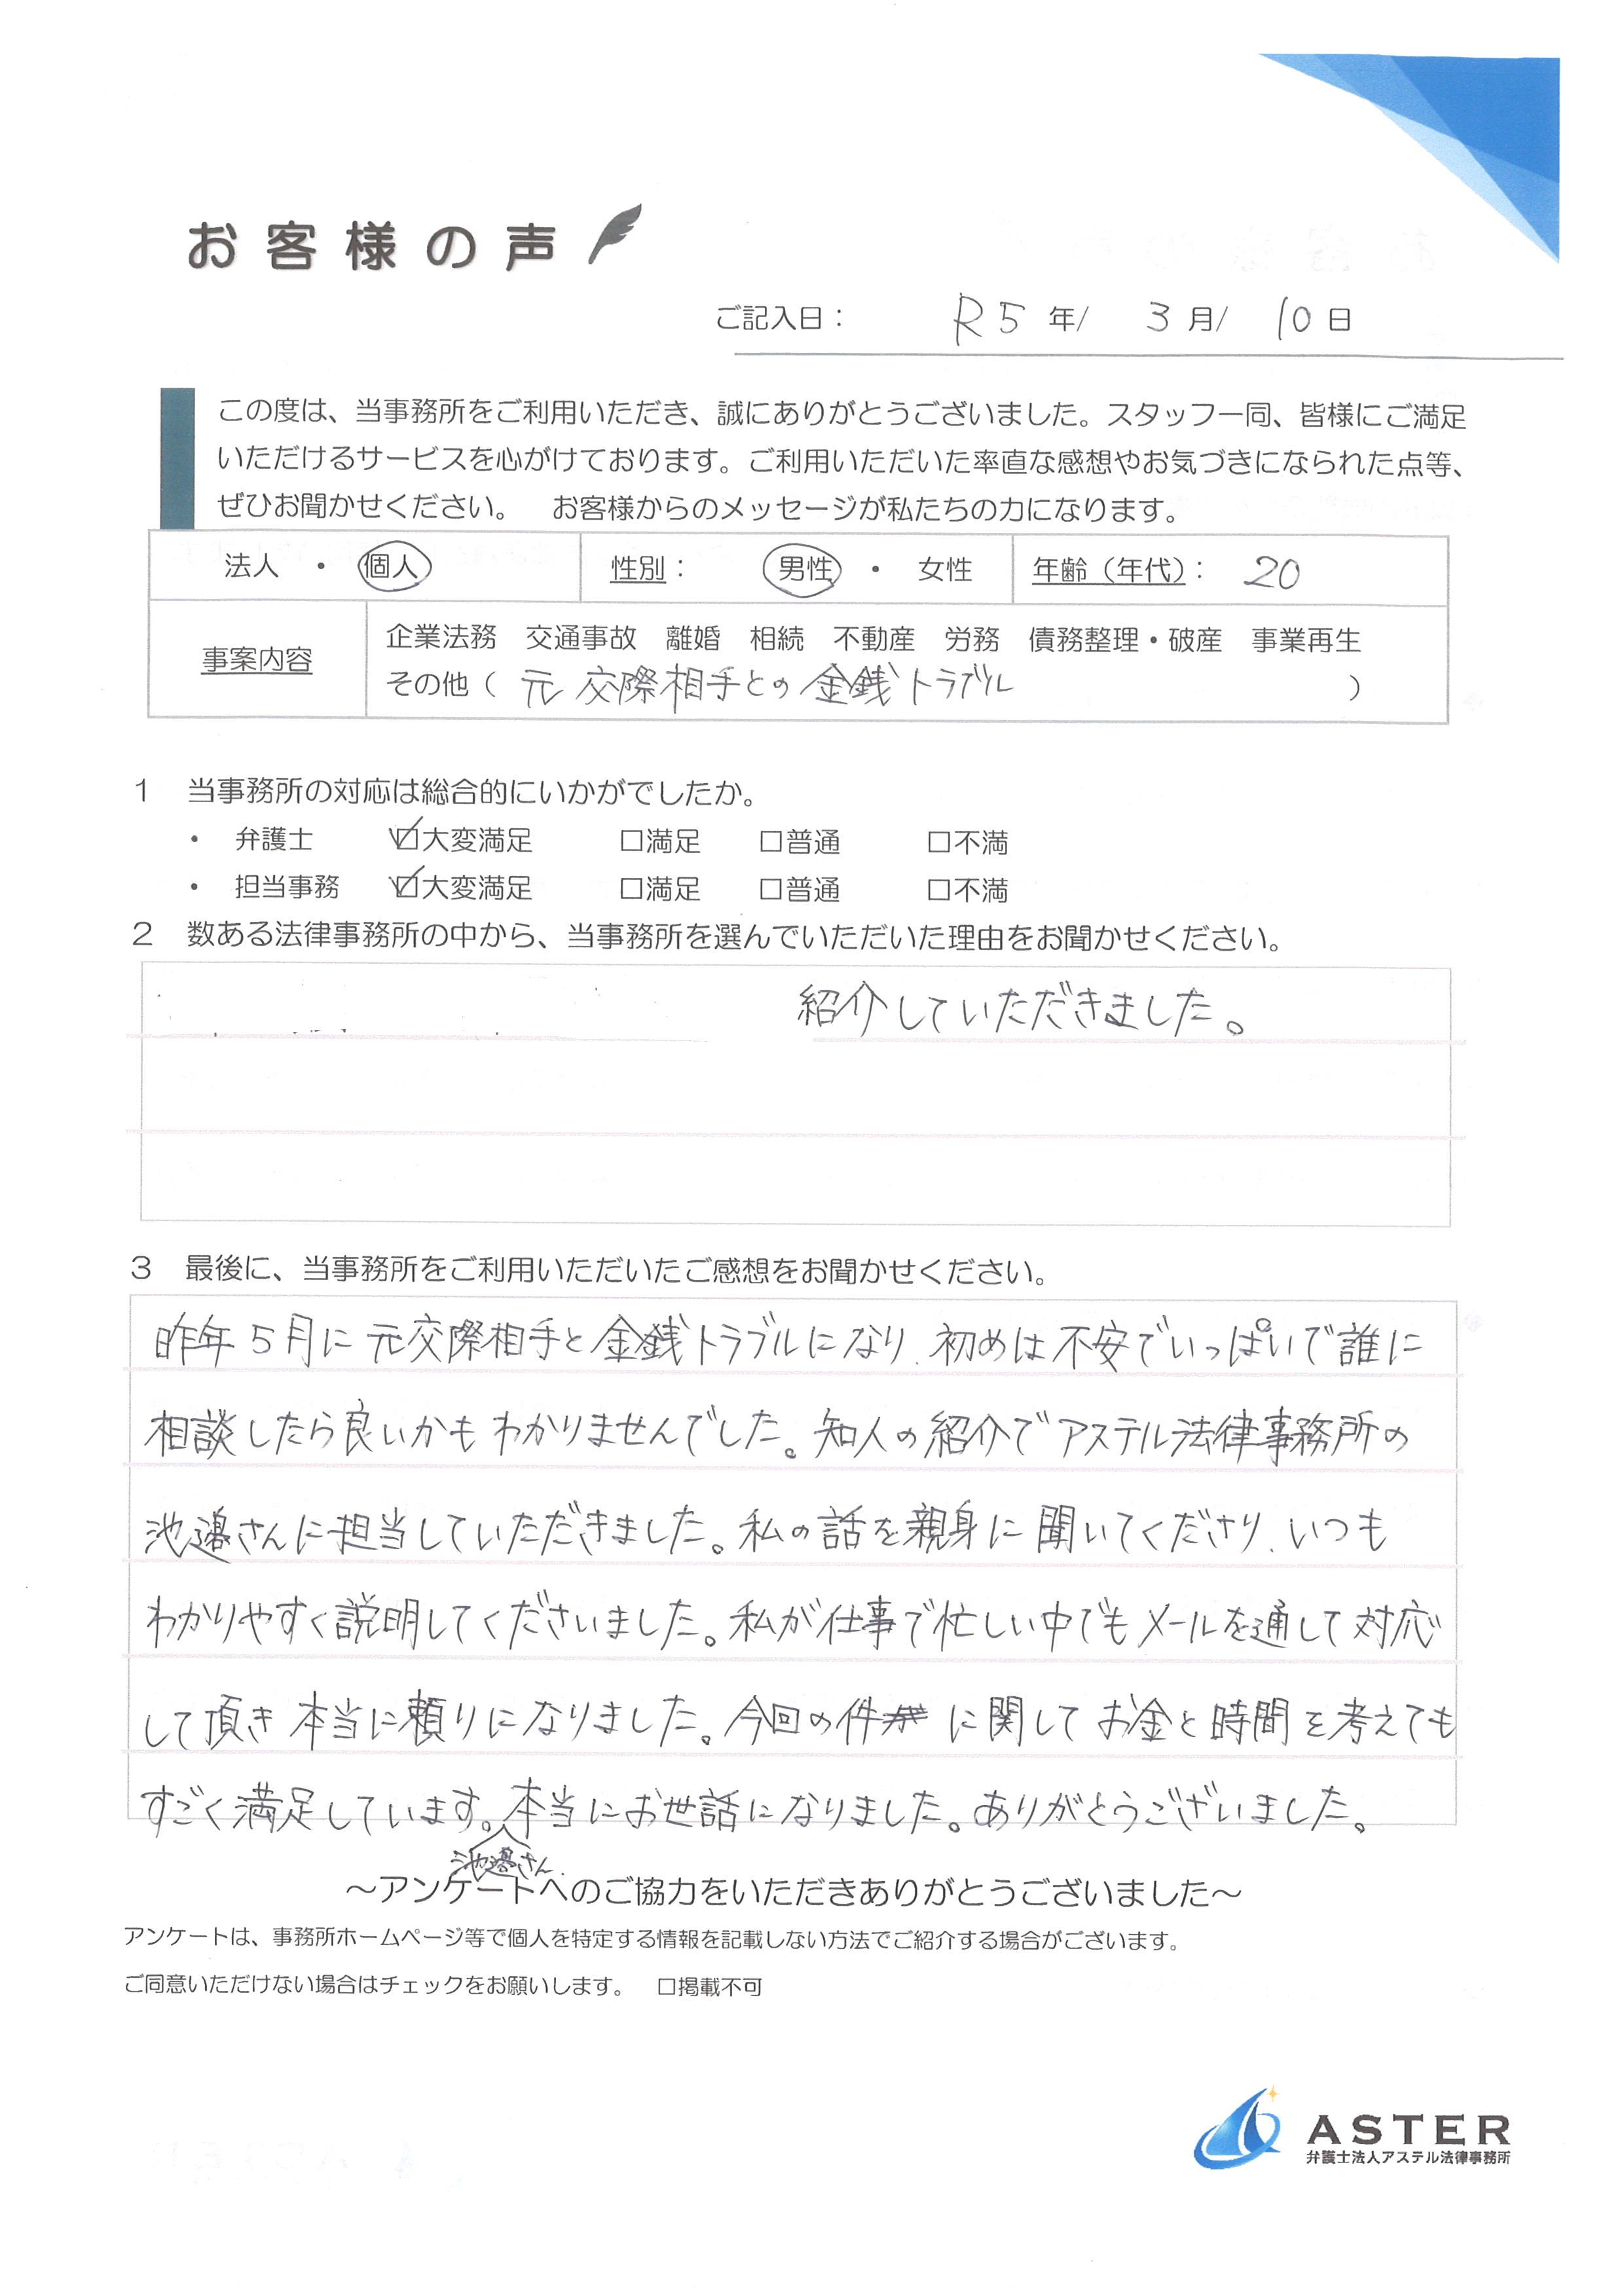 お客様の声
ご記入日： R5 年/ 3 月/ 10 日
この度は、当事務所をご利用いただき、誠にありがとうございました。スタッフ一同、皆様にご満足
いただけるサービスを心がけております。ご利用いただいた率直な感想やお気づきになられた点等、
ぜひお聞かせください。 お客様からのメッセージが私たちの力になります。
法人 ・ 個人 性別： 男性 ・ 女性 年齢（年代）： 20
事案内容
企業法務 交通事故 離婚 相続 不動産 労務 債務整理・破産 事業再生
その他（ 元交際相手との金銭トラブル ）
1 当事務所の対応は総合的にいかがでしたか。
・ 弁護士 ☑大変満足 □満足 □普通 □不満
・ 担当事務 ☑大変満足 □満足 □普通 □不満
2 数ある法律事務所の中から、当事務所を選んでいただいた理由をお聞かせください。
紹介していただきました。
3 最後に、当事務所をご利用いただいたご感想をお聞かせください。
昨年5月に元交際相手と金銭トラブルになり、初めは不安でいっぱいで誰に
相談したら良いかもわかりませんでした。知人の紹介でアステル法律事務所の
池邊さんに担当していただきました。私の話を親身に聞いてくださり、いつも
わかりやすく説明してくださいました。私が仕事で忙しい中でもメールを通して対応
して頂き本当に頼りになりました。今回の件に関してお金と時間を考えても
すごく満足しています。本当にお世話になりました。ありがとうございました。
池邊さん
～アンケートへのご協力をいただきありがとうございました～
アンケートは、事務所ホームページ等で個人を特定する情報を記載しない方法でご紹介する場合がございます。
ご同意いただけない場合はチェックをお願いします。 □掲載不可
ASTER
弁護士法人アステル法律事務所